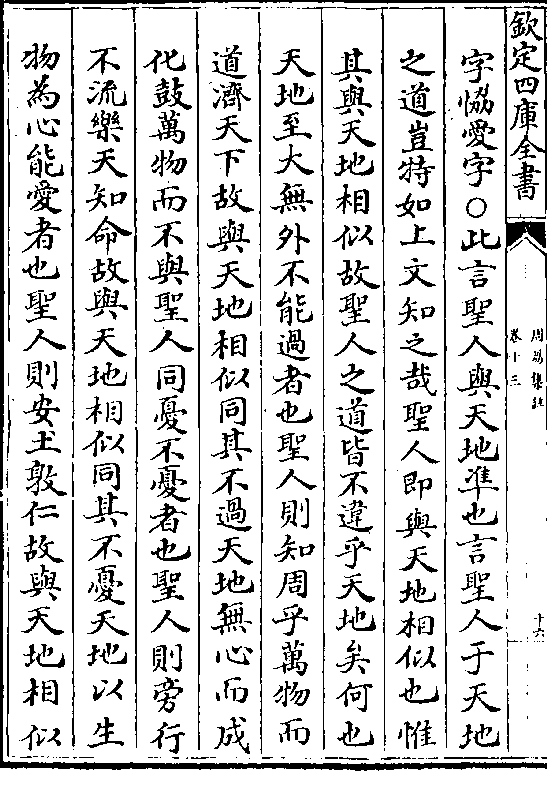 欽定四庫全書
周易集註
卷十三
十六
字惱愛字○此言聖人與天地準也言聖人于天地
之道豈特如上文知之哉聖人即與天地相似也惟
其與天地相似故聖人之道皆不違乎天地矣何也
天地至大無外不能過者也聖人則知周乎萬物而
道濟天下故與天地相似同其不過天地無心而成
化鼓萬物而不與聖人同憂不憂者也聖人則旁行
不流樂天知命故與天地相似同其不憂天地以生
物為心能愛者也聖人則安土敦仁故與天地相似